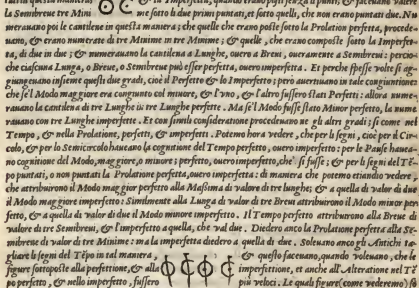 la Semibreue tre Mini me sotto li due primi puntati, et sotto quelli, che non erano puntati due. Nu
merauano poi le cantilene in questa maniera; che quelle che erano poste sotto la Prolation perfetta, procede-
uano, & erano numerate di tre Minime in tre Minime; & quelle, che erano composte sotto la Imperfet-
ta, di due in due; & numerauano la cantilena a Lunghe, ouero a Breui, ouramente a Semibreui: percio-
che ciascuna Lunga, o Breue, o Semibreue può esser perfetta, ouero imperfetta. Et perche spesse volte si con-
giungeuano insieme questi due gradi, cioè il Perfetto & lo Imperfetto; però auertiuano in tale congiuntione
che se'l Modo maggiore era congiunto col minore, & l'vno, & l'altro fussero stati Perfetti: allora nume-
rauano la cantilena di tre Lunghe in tre Lunghe perfette. Ma se'l Modo fusse stato Minor perfetto, la nume
rauano con tre Lunghe imperfette. Et con simili considerationi procedeuano ne gli altri gradi; si come nel
Tempo, & nella Prolatione, perfetti, & imperfetti. Potemo hora vedere, che per li segni, cioè per il Cir-
colo, & per lo Semicircolo haueano la cognitione del Tempo perfetto, ouero imperfetto: per le Pause hauea-
no cognitione del Modo, maggiore, o minore; perfetto, ouero imperfetto, che si fusse; & per li segni del Tē-
po puntati, o non puntati la Prolatione perfetta, ouero imperfetta: di maniera che potemo etiandio vedere,
che attribuirono il Modo maggior perfetto alla Maßima di valore di tre lunghe; & a quella di valor di due
il Modo maggiore imperfetto: Similmente alla Lunga di valor di tre Breui attribuirono il Modo minor per
fetto, & a quella di valor di due il Modo minore imperfetto. Il Tempo perfetto attribuirono alla Breue di
valore di tre Semibreui, & l'imperfetto a quella, che val due. Diedero anco la Prolatione perfetta alla Se-
mibreue di valor di tre Minime: ma la imperfetta diedero a quella di due. Soleuano anco gli Antichi ta-
gliare li segni del Tēpo in tal maniera, & questo faceuano, quando voleuano, che le
figure sottoposte alla perfettione, & alla imperfettione, et anche all'Alteratione nel Tē
po perfetto, & nello imperfetto, fussero più veloci. Le quali figure (come vederemo) si